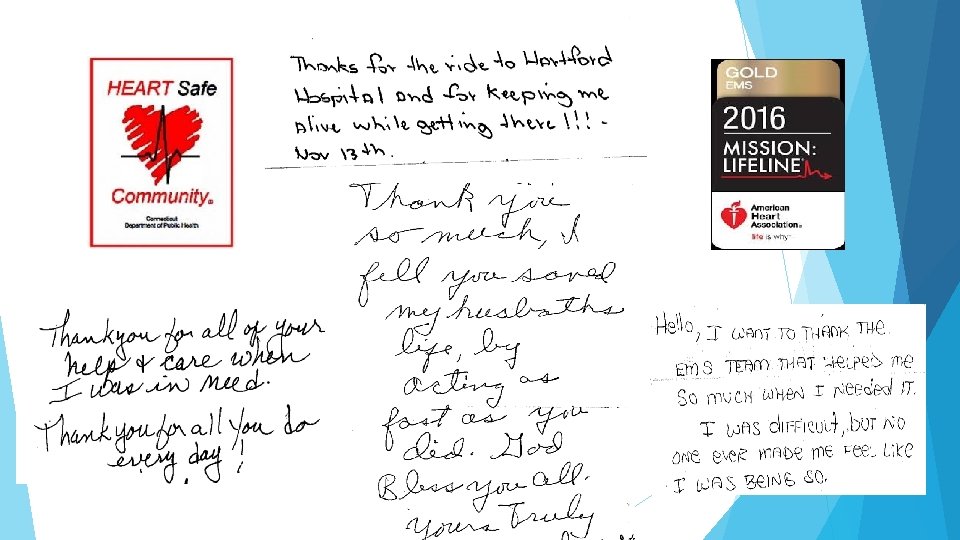 HEART Safe
Community®
Connecticut
Department of Public Health
Thanks for the ride to Hartford
Hospital and for keeping me
alive while getting there!!! -
Nov 13th.
GOLD
EMS
2016
MISSION:
LIFELINE®
American
Heart
Association®
life is why™
Thank you
so much, I
fell you saved
my husbaths
life, by
acting as
fast as you
did. God
Bless you all.
Yours Truly
Thankyou for all of your
help & care when
I was in need.
Thankyou for all you do
every day!
Hello, I WANT TO THANK THE
EMS TEAM THAT HELPED ME
SO MUCH WHEN I NEEDED IT.
I WAS DIFFICULT, BUT NO
ONE EVER MADE ME FEEL LIKE
I WAS BEING SO.